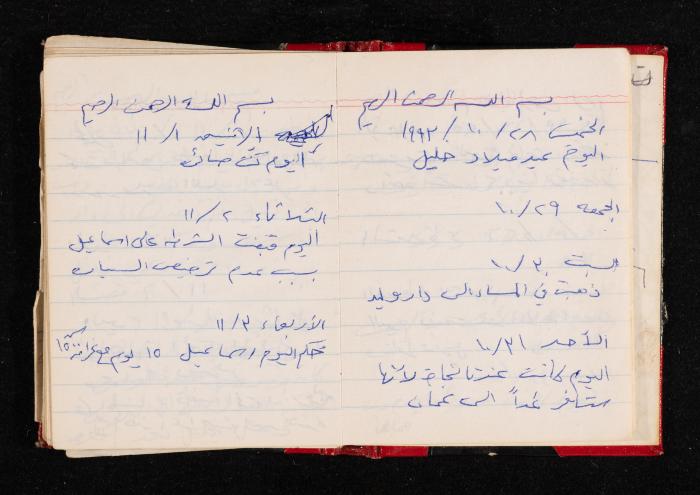 بسم الله الرحمن الرحيم
الخميس ٢٨ / ١٠ / ١٩٩٣
اليوم عيد ميلاد خليل
الجمعه ٢٩ / ١٠
السبت ٣٠ / ١٠
ذهبت في المساء الى دار وليد
الأحد ٣١ / ١٠
اليوم كانت عندنا نجاح لأنها
ستسافر غداً الى عمان
بسم الله الرحمن الرحيم
الاثنين ١ / ١١
اليوم كنت صائم
الثلاثاء ٢ / ١١
اليوم قبضت الشرطه على اسماعيل
بسبب عدم ترخيص السياره
الأربعاء ٣ / ١١
حكم اليوم اسماعيل ١٥ يوم مع غرامة